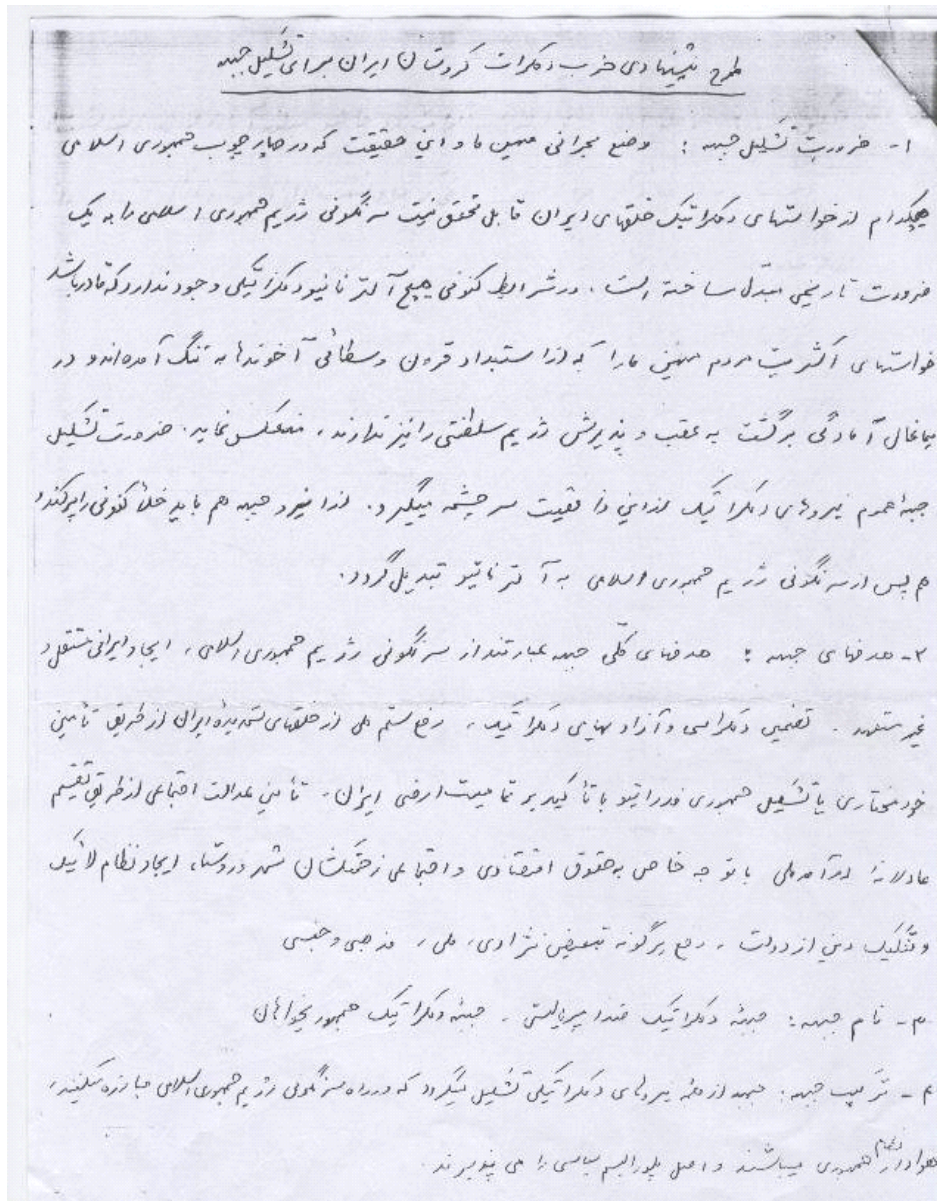 طرح پیشنهادی حزب دمکرات کردستان ایران برای تشکیل جبهه
۱- ضرورت تشکیل جبهه : وضع بحرانی میهن ما و این حقیقت که در چهارچوب جمهوری اسلامی
هیچکدام از خواستهای دمکراتیک خلقهای ایران قابل تحقق نیست سرنگونی رژیم جمهوری اسلامی را به یک
ضرورت تاریخی مبدل ساخته است . در شرایط کنونی هیچ آلترناتیو دمکراتیکی وجود ندارد که قادر باشد
خواستهای اکثریت مردم میهن ما را که از استبداد قرون وسطائی آخوندها به تنگ آمده‌اند و در
عین حال آمادگی برگشت به عقب و پذیرش رژیم سلطنتی را نیز ندارند ، منعکس نماید . ضرورت تشکیل
جبهٔ عموم نیروهای دمکراتیک از این واقعیت سرچشمه میگیرد . لذا نیرو جبهه هم باید خلأ کنونی را پر کند و
هم پس از سرنگونی رژیم جمهوری اسلامی به آلترناتیو تبدیل گردد .
۲- هدفهای جبهه : هدفهای کلّی جبهه عبارتند از سرنگونی رژیم جمهوری اسلامی ، ایجاد ایرانی مستقل و
غیر متعهد . تضمین دمکراسی و آزادیهای دمکراتیک ، رفع ستم ملی از خلقهای ستمدیدهٔ ایران از طریق تأمین
خودمختاری یا تشکیل جمهوری فدراتیو با تأکید بر تمامیت ارضی ایران ، تأمین عدالت اجتماعی از طریق تقسیم
عادلانهٔ درآمد ملی با توجه خاص به حقوق اقتصادی و اجتماعی زحمتکشان شهر و روستا ، ایجاد نظام لائیک
و تفکیک دین از دولت ، رفع هرگونه تبعیض نژادی ، ملی ، مذهبی و جنسی
۳- نام جبهه : جبههٔ دمکراتیک ضد امپریالیستی - جبههٔ دمکراتیک جمهوریخواهان
۴- ترکیب جبهه : جبهه از همه نیروهای دمکراتیکی تشکیل میگردد که در راه سرنگونی رژیم جمهوری اسلامی مبارزه میکنند ،
هوادار نظام جمهوری میباشند و اصل پلورالیسم سیاسی را می پذیرند .